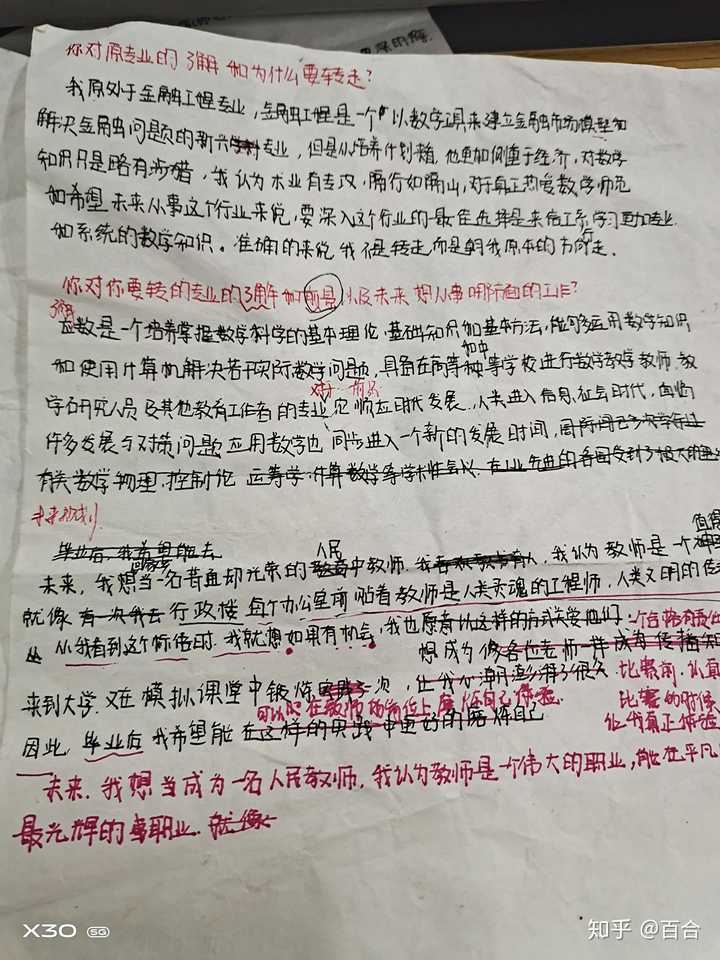 你对原专业的了解和为什么要转走?
我原处于金融工程专业,金融工程是一个以数学工具来建立金融市场模型和
解决金融问题的新兴学科专业,但是从培养计划看,他更加侧重于经济,对数学
知识只是略有涉猎,我认为术业有专攻,隔行如隔山,对于真正热爱数学师范
和希望未来从事这个行业来说,要深入这个行业的最佳选择是来信工系学习更加专业
和系统的数学知识。准确的来说我不是转走而是朝我原本的方向走。
你对你要转的专业的了解和前景以及未来想从事哪方面的工作?
了解
应数是一个培养掌握数学科学的基本理论、基础知识和基本方法,能够运用数学知识
和使用计算机解决若干实际数学问题,具备在高等和中等学校进行数学教学教师、教
学研究人员及其他教育工作者的专业
顺应时代发展,人类进入信息社会时代,面临
许多发展与对策问题,应用数学也同步进入一个新的发展时间,
有关数学物理、控制论、运筹学、计算数学等学术性会议
未来规划
毕业后,我希望能去
人民
未来,我想当一名普通却光荣的教育中教师,我认为教师是一个
就像有一次我去行政楼每个办公室前贴着教师是人类灵魂的工程师,人类文明的传
从我看到这个标语时,我就想如果有机会,我也愿意以这样的方式关爱他们
想成为像各位老师一样成为传播知
来到大学,又在模拟课堂中锻炼一次,让我心潮澎湃了很久 比赛前,认真
可以在教师的岗位上磨炼自己体验
比赛的时候
因此,毕业后我希望能在这样的实践中更好的磨炼自己
让我真正体验
未来,我想当成为一名人民教师,我认为教师是一个伟大的职业,能在平凡
最光辉的事职业,就像
X30 5G
知乎 @百合